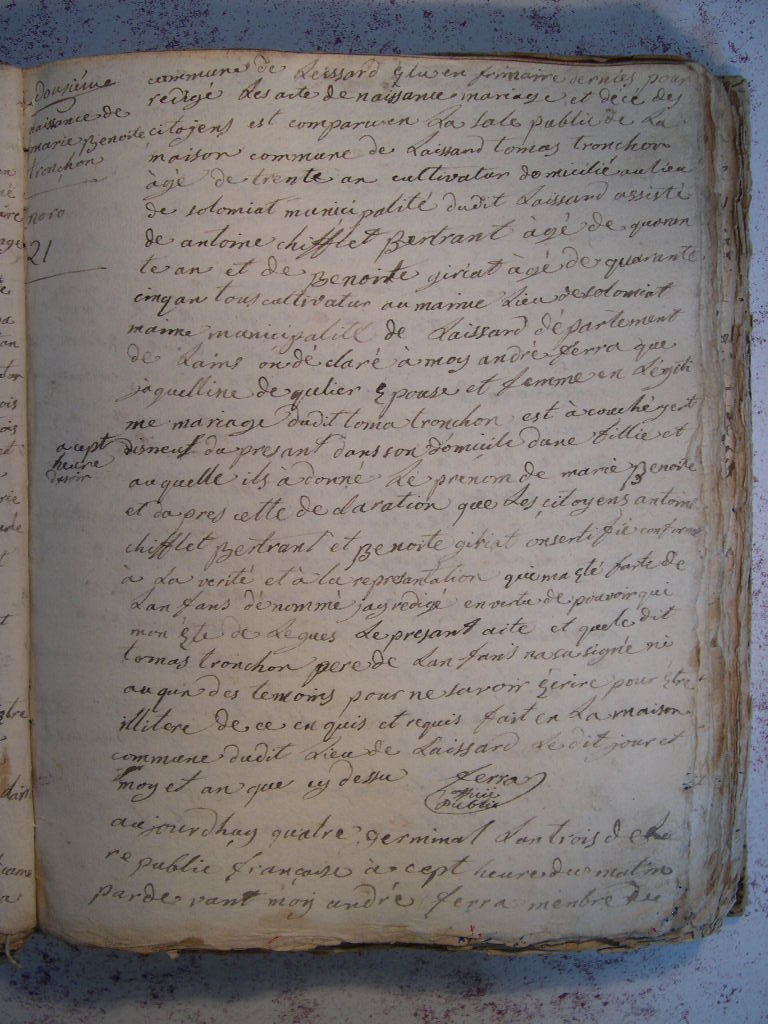 dousiéme
naissance de
marie Benoite
tronchon
noro
21
commune de Leissard élu en frimaire dernies pour
redigé Les aite de naissance mariage et décé des
citoyens est comparu en La sale public de La
maison commune de Laissard tomas tronchon
àgé de trente an cultivatur domicilié au lieu
de solomiat municipalité dudit Laissard assisté
de antoine chifflet Bertrant àgé de quaran
te an et de Benoite giriat àgé de quarante
cinq an tous cultivatur au maime Lieu de solomiat
maime municipalité de Laissard département
de Lains on dé claré à moy andré ferra que
jaquelline de gulier épouse et femme en Légiti
me mariage dudit toma tronchon est à couché yert
disneuf du presant dans son domicile dune fillie et
a cept
heure
du soir
au quelle ils à donné Le prénom de marie Benoite
et da pres cette de claration que Les çitoyens antoine
chifflet Bertrant et Benoite giriat on serti fié conforme
à La verité et à la represantation que ma été faite de
Lan fans dénommé jay redigé en vertu de pouvoir qui
mon éte de Legues Le presant aite et que le dit
tomas tronchon pere de Lan fans na su signé ni
auqun des temoins pour ne savoir écrire pour étre
illitere de ce en quis et requis fait en La maison
commune dudit Lieu de Laissard Le dit jour et
moy et an que cy dessu ferra
offiii
public
aujourdhuy quatre germinal Lan trois de La
republic françoise à cept heure du matin
parde vant moy andré ferra menbre du